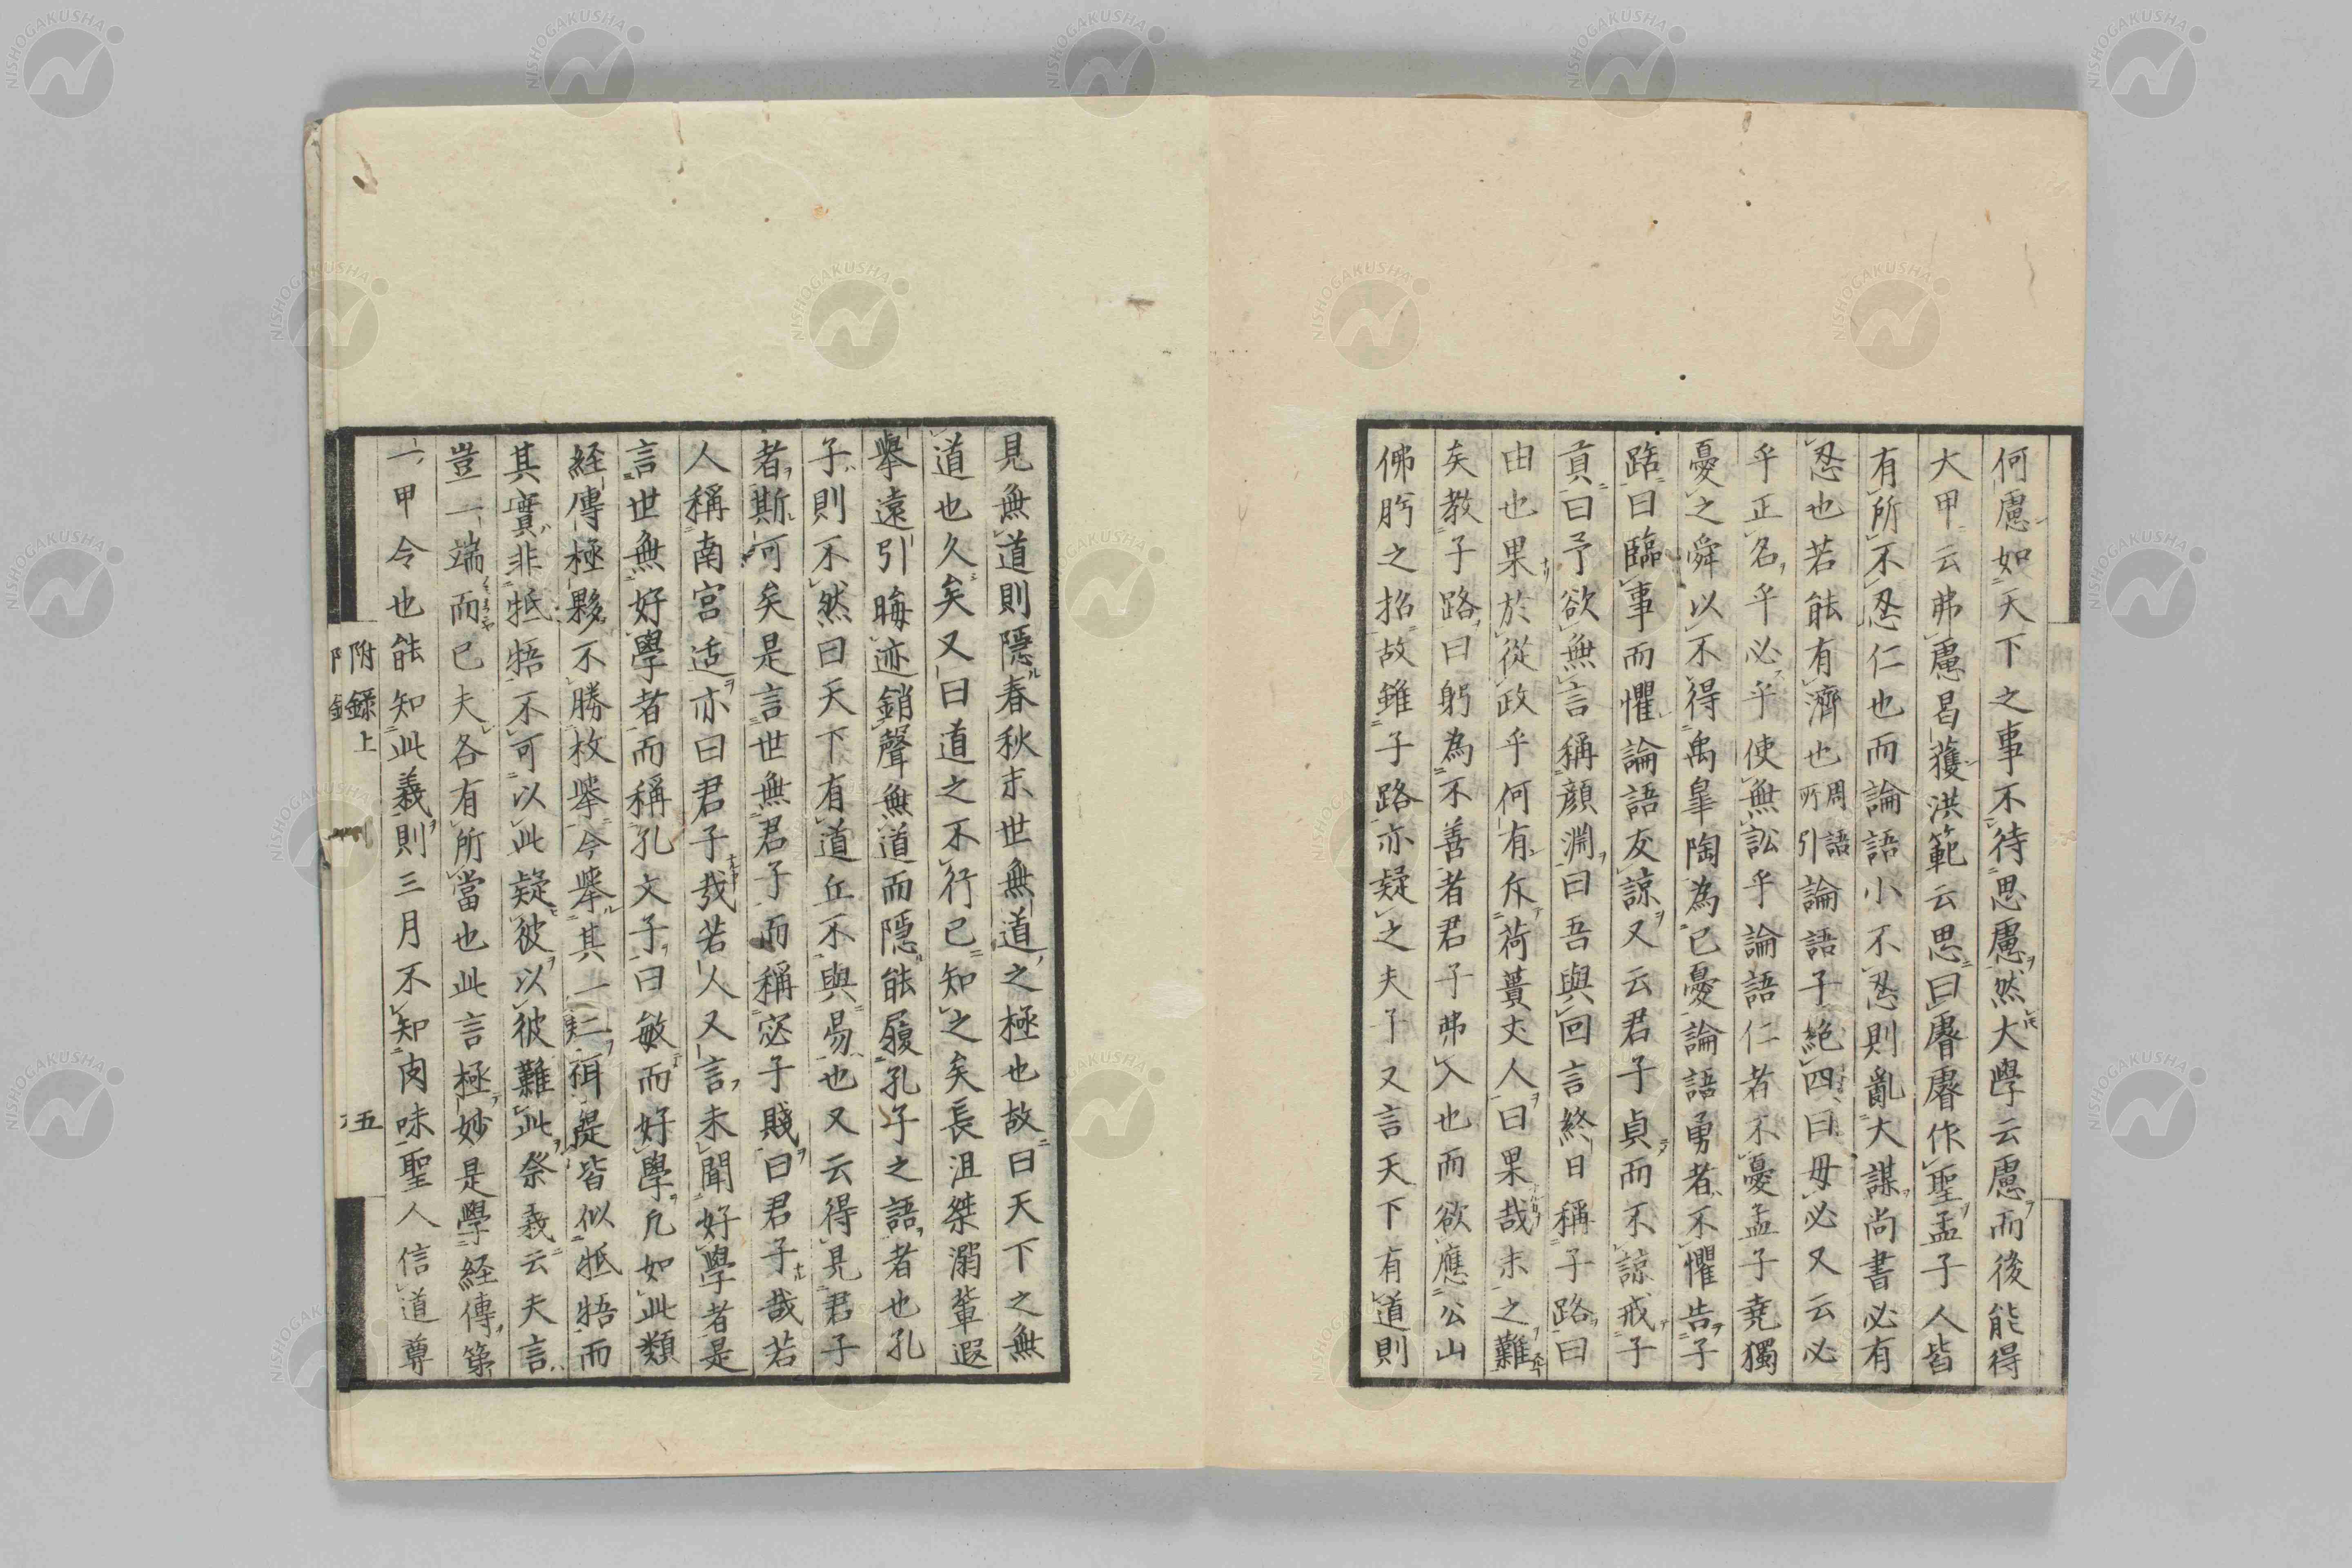 何慮如天下之事不待思慮然大學云慮而後能得
大甲云弗慮曷獲洪範云思曰睿睿作聖孟子人皆
有所不忍仁也而論語小不忍則亂大謀尚書必有
忍也若能有濟也周語所引論語子絕四曰毋必又云必
乎正名乎必乎使無訟乎論語仁者不憂孟子堯獨
憂之舜以不得禹皐陶為已憂論語勇者不懼告子
路曰臨事而懼論語友諒又云君子貞而不諒戒子
貢曰予欲無言稱顏淵曰吾與回言終日稱子路曰
由也果於從政乎何有斥荷蕢丈人曰果哉末之難
矣教子路曰躬為不善者君子弗入也而欲應公山
佛肸之招故雖子路亦疑之夫子又言天下有道則
見無道則隱春秋末世無道之極也故曰天下之無
道也久矣又曰道之不行已知之矣長沮桀溺輩遐
擧遠引晦迹銷聲無道而隱能履孔子之語者也孔
子則不然曰天下有道丘不與易也又云得見君子
者斯可矣是言世無君子而稱宓子賤曰君子哉若
人稱南宮适亦曰君子哉若人又言未聞好學者是
言世無好學者而稱孔文子曰敏而好學凡如此類
経傳極夥不勝枚擧今擧其一二耳是皆似牴牾而
其實非牴牾不可以此疑彼以彼難此祭義云夫言
豈一端而已夫各有所當也此言極妙是學経傳第
一甲令也能知此義則三月不知肉味聖人信道尊
附錄上
五
NISHOGAKUSHA